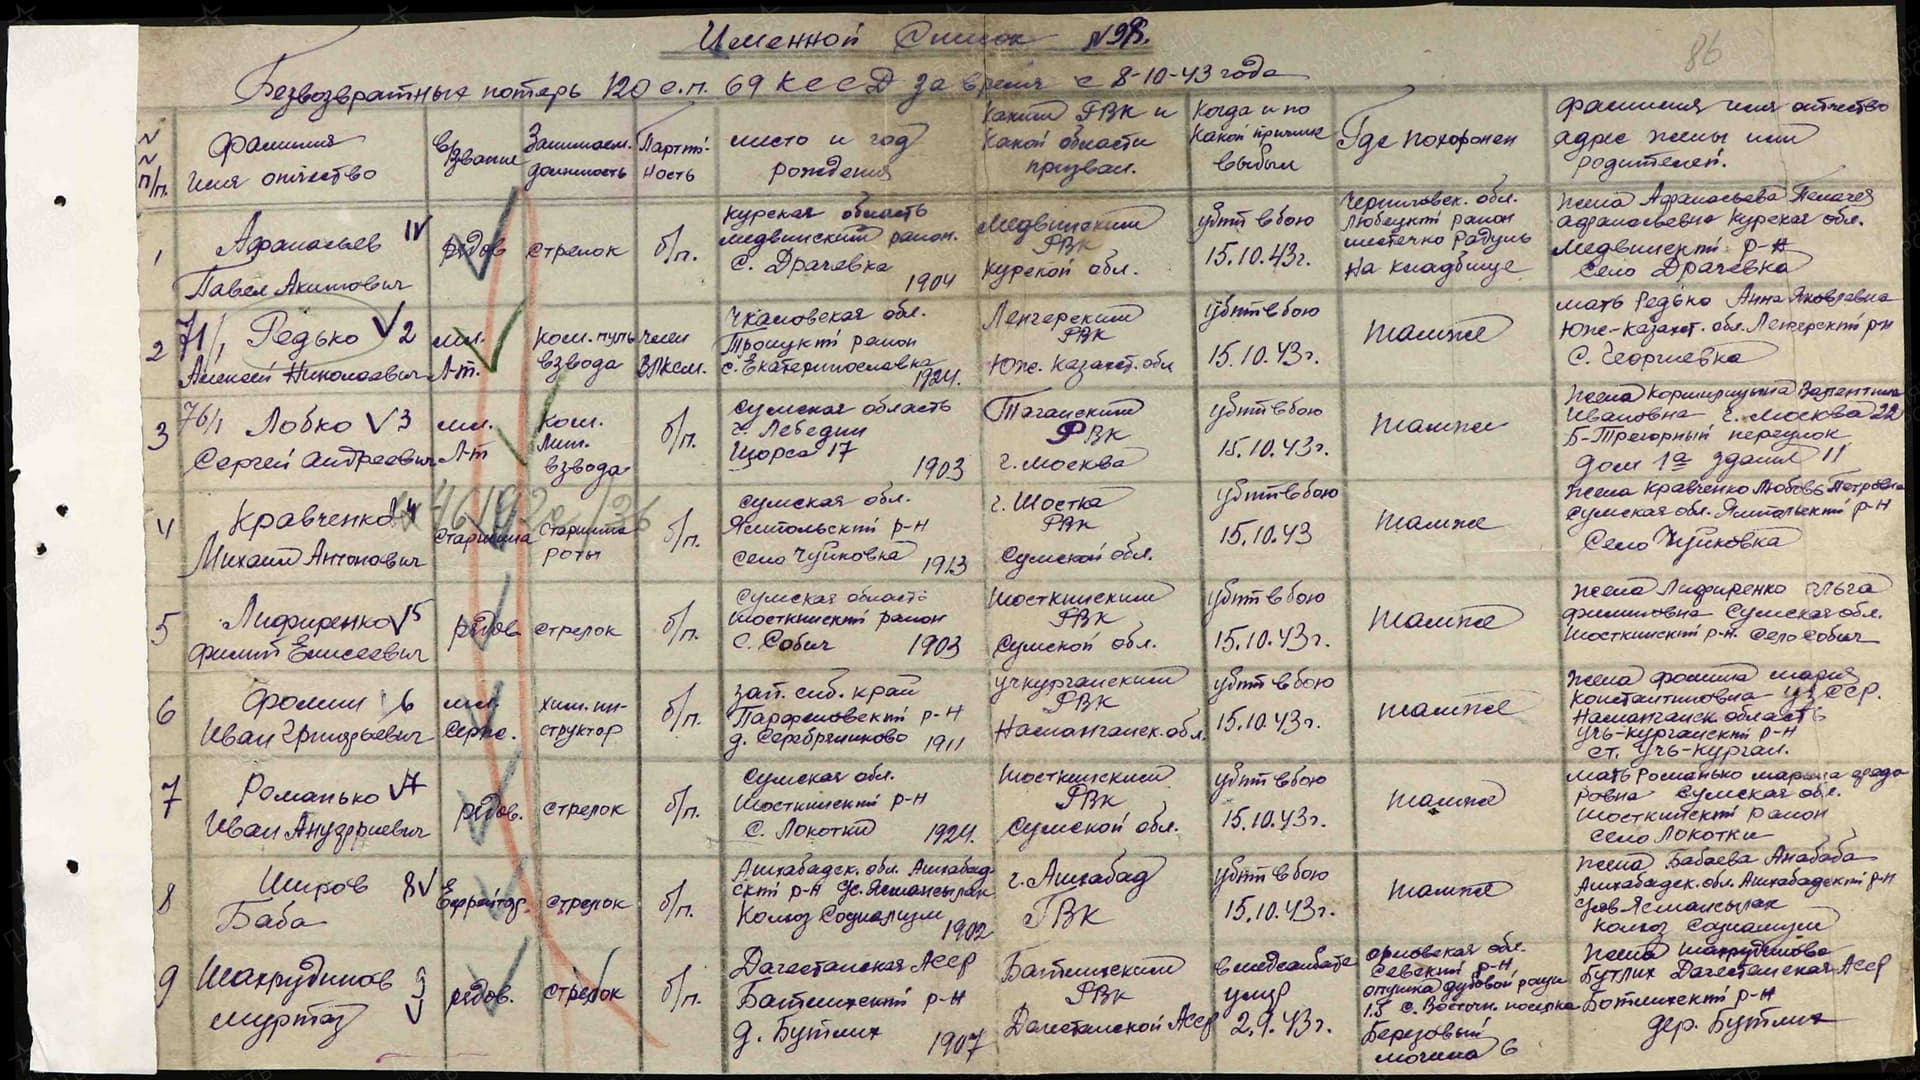 Именной Список №98.
86
Безвозвратных потерь 120 с.п. 69 КССД за время с 8-10-43 года
N N п/п.
фамилия
имя отчество
в/звание
Занимаем.
должность
Партий-
ность
место и год
рождения
Каким РВК и
какой области
призван.
Когда и по
какой причине
выбыл
Где похоронен
фамилия имя отчество
адрес жены или
родителей.
1
Афанасьев IV
Павел Акимович
рядов
стрелок
б/п.
Курская область
Медвинский район.
с. Драчевка
1904
Медвинским
РВК
Курской обл.
убит в бою
15.10.43г.
Черниговск. обл.
Любецкий район
местечко Радуль
на кладбище
жена Афанасьева Пелагея
Афанасьевна Курская обл.
Медвинский р-н
село Драчевка
2
71/1 Редько V 2
Алексей Николаевич
мл.
Л-т.
ком. пуль
взвода
член
ВЛКСМ.
Чкаловская обл.
Троицкий район
с. Екатеринославка
1924.
Ленгерским
РВК
Юж. Казахст. обл
убит в бою
15.10.43г.
тамже
мать Редько Анна Яковлевна
Юж-Казахст. обл. Ленгерский р-н
с. Георгиевка
3
76/1 Лобко V 3
Сергей Андреевич
мл.
Л-т
ком.
мин.
взвода
б/п.
Сумская область
г. Лебедин
Щорса 17
1903
Таганским
РВК
г. Москва
убит в бою
15.10.43г.
тамже
жена Валентина
Ивановна г. Москва 22
Б-Трегорный переулок
дом 1а здания 11
4
Кравченко 4
Михаил Антонович
старшина
старшина
роты
б/п.
Сумская обл.
Ямпольский р-н
село Чуйковка 1913
г. Шостка
РВК
Сумской обл.
убит в бою
15.10.43
тамже
жена Кравченко Любовь Петровна
Сумская обл. Ямпольский р-н
село Чуйковка
5
Лифиренко V5
Филип Елисеевич
рядов
стрелок
б/п.
Сумская область
Шосткинский район
с. Собич 1903
Шосткинским
РВК
Сумской обл.
убит в бою
15.10.43г.
тамже
жена Лифиренко Ольга
Филиповна Сумская обл.
Шосткинский р-н. село Собич
6
Фомин 6
Иван Григорьевич
мл.
серж.
хим. ин-
структор
б/п.
Зап. сиб. край
Парфеновский р-н
д. Серебрянниково 1911
Учкурганским
РВК
Наманганск. обл.
убит в бою
15.10.43г.
тамже
жена Фомина Мария
Константиновна Уз. ССР.
Наманганск. область
Учь-Курганский р-н
ст. Учь-Курган.
7
Романько V7
Иван
рядов.
стрелок
б/п.
Сумская обл.
Шосткинский р-н
с. Локотки 1924.
Шосткинским
РВК
Сумской обл.
убит в бою
15.10.43г.
тамже
мать Романько
Сумская обл.
Шосткинский район
село Локотки
8
Широв 8V
Баба
Ефрейтор.
стрелок
б/п.
Ашхабадск. обл. Ашхабад-
ский р-н
Колхоз Социализм
1902
г. Ашхабад
ГВК
убит в бою
15.10.43г.
тамже
жена Бабаева Анабаба
Ашхабадск. обл. Ашхабадский р-н
колхоз Социализм
9
Шахрудинов 9
Муртаз V
рядов.
стрелок
б/п.
Дагестанская АССР
Батлихский р-н
д. Бутлих
1907
Батлихским
РВК
Дагестанской АССР
в медсанбате
умер
2.9.43г.
Орловская обл.
Севский р-н
опушка дубовой рощи
1.5 с. Восточн. поселка
Березовый
могила 6
жена Шахрудинова
Бутлих Дагестанская АССР
Ботлихский р-н
дер. Бутлих